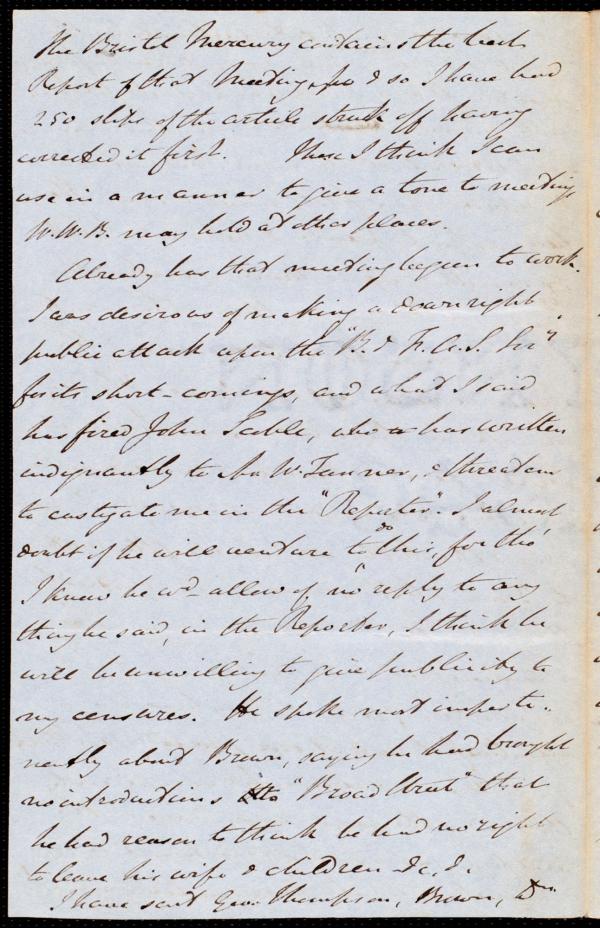 The Bristol Mercury contains the best
Report of that Meeting, & so I have had
250 slips of the article struck off having
corrected it first. These I think I can
use in a manner to give a tone to meetings
W. W. B. may hold at other places.
Already has that meeting begun to work.
I was desirous of making a downright
public attack upon the "B. & F. A. S. Soc"
for its short-comings, and what I said
has fired John Scoble, who has written
indignantly to Mr W. Tanner, & threatens
to castigate me in the "Reporter". I almost
doubt if he will venture to do this, for tho'
I know he wd. allow of no reply to any
thing he said, in the Reporter, I think he
will be unwilling to give publicity to
my censures. He spoke most imperti-
nently about Brown, saying he had brought
no introductions to "Broad Street" that
he had reason to think he had no right
to leave his wife & children &c. &.
I have sent Geo. Thompson, Brown, Dr.